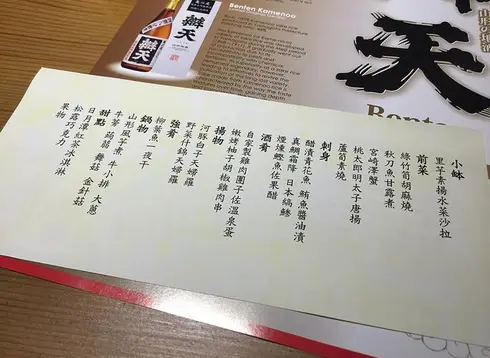 Benten Kamenoo
辯天
天
山形の地酒
Benten
小缽
里芋素揚水菜沙拉
前菜
綠竹筍胡麻燒
秋刀魚甘露煮
宮崎澤蟹
桃太郎明太子唐揚
蘆筍素燒
刺身
醋漬青花魚 鮪魚醬油漬
真鯛霜降 日本縞鯵
煙燻鰹魚佐果醋
酒肴
自家製雞肉團子佐溫泉蛋
嫩烤柚子胡椒雞肉串
揚物
河豚白子天婦羅
野菜什錦天婦羅
強肴
柳葉魚一夜干
鍋物
山形風芋煮 牛小排 大蔥
牛蒡 蒟蒻 舞菇 金針菇
甜點
日月潭紅茶冰淇淋
松露巧克力
果物